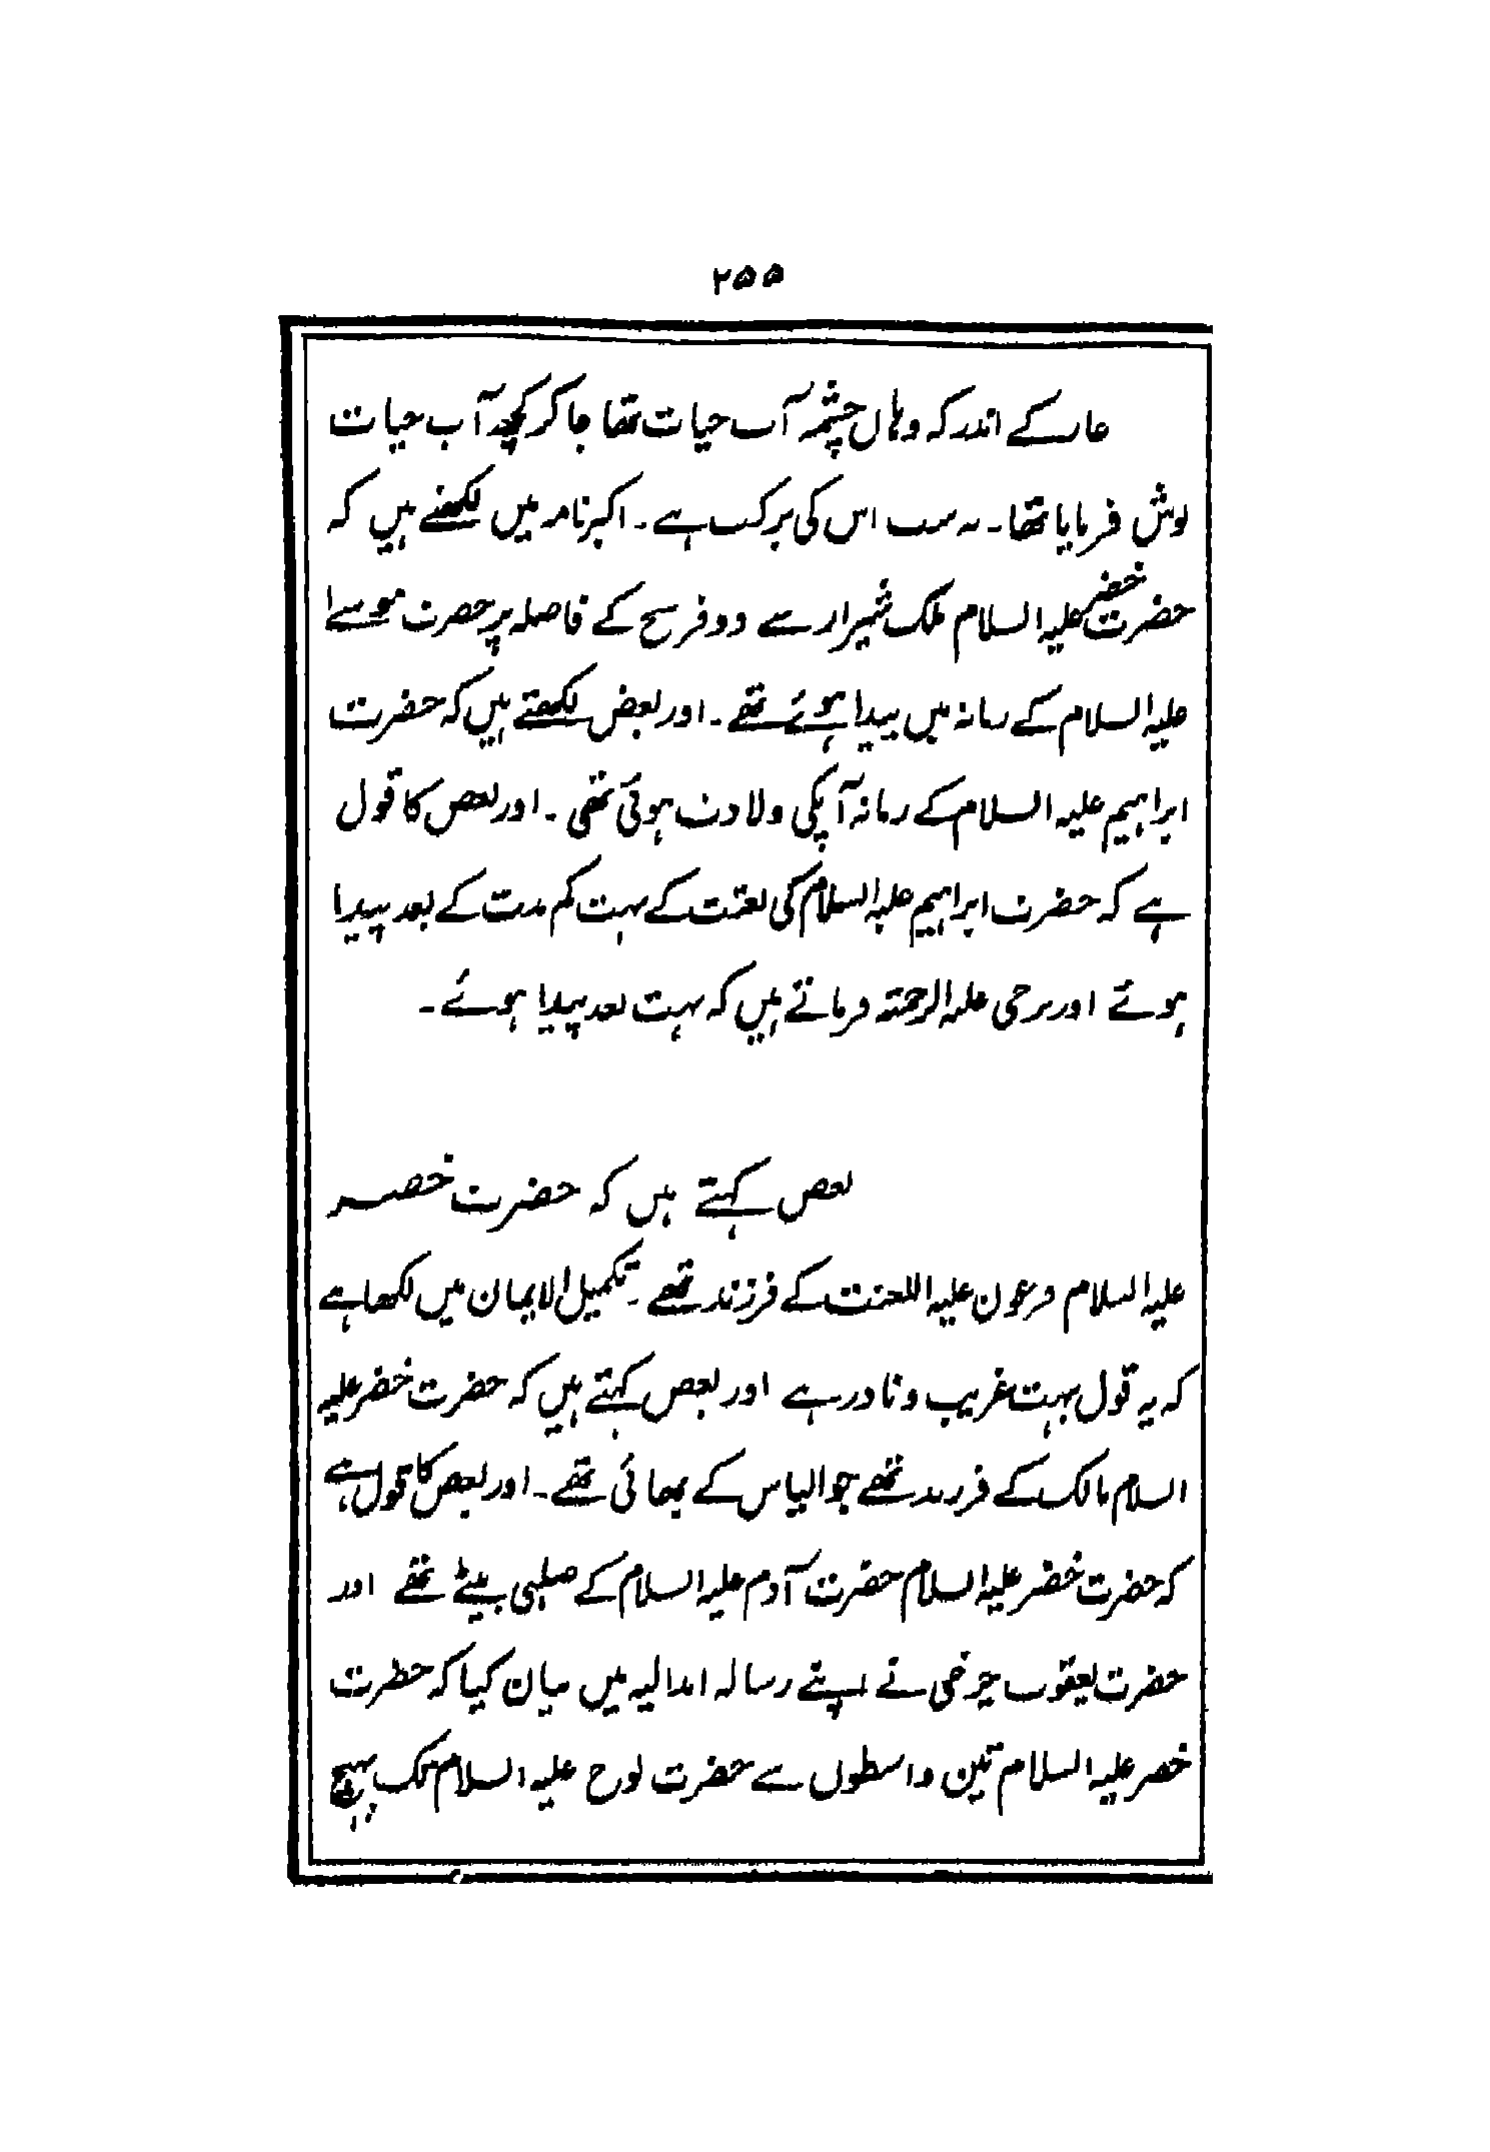 ۲۵۵
غار کے اندر کہ وہاں چشمۂ آب حیات تھا جا کر کچھ آب حیات
نوش فرمایا تھا۔ یہ سب اس کی برکت ہے۔ اکبرنامہ میں لکھتے ہیں کہ
حضرت خضر علیہ السلام ملک شیراز سے دو فرسخ کے فاصلہ پر حضرت موسےٰ
علیہ السلام کے زمانہ میں پیدا ہوئے تھے۔ اور بعض لکھتے ہیں کہ حضرت
ابراہیم علیہ السلام کے زمانہ آپکی ولادت ہوئی تھی۔ اور بعض کا قول
ہے کہ حضرت ابراہیم علیہ السلام کی بعثت کے بہت کم مدت کے بعد پیدا
ہوئے اور علیہ الرحمتہ فرماتے ہیں کہ بہت بعد پیدا ہوئے۔
بعض کہتے ہیں کہ حضرت خضر
علیہ السلام فرعون علیہ اللعنت کے فرزند تھے۔ تکمیل الایمان میں لکھا ہے
کہ یہ قول بہت غریب و نادر ہے اور بعض کہتے ہیں کہ حضرت خضر علیہ
السلام مالک کے فرزند تھے جو الیاس کے بھائی تھے۔ اور بعض کا قول ہے
کہ حضرت خضر علیہ السلام حضرت آدم علیہ السلام کے صلبی بیٹے تھے اور
حضرت یعقوب چرخی نے اپنے رسالہ ابدالیہ میں بیان کیا کہ حضرت
خضر علیہ السلام تین واسطوں سے حضرت نوح علیہ السلام تک پہنچ